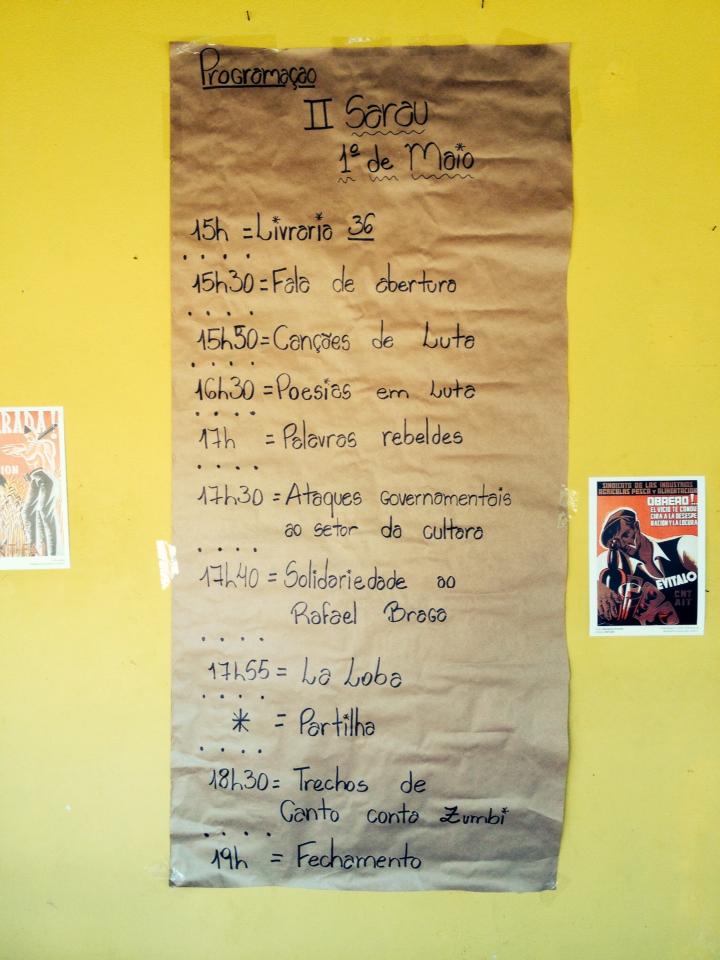 Programação
II Sarau
1º de Maio
15h = Livraria 36
15h30 = Fala de abertura
15h50 = Canções de Luta
16h30 = Poesias em Luta
17h = Palavras rebeldes
17h30 = Ataques governamentais
ao setor da cultura
17h40 = Solidariedade ao
Rafael Braga
17h55 = La Loba
* = Partilha
18h30 = Trechos de
Canto conta Zumbi
19h = Fechamento
RADA!
ION
SINDICATO DE LAS INDUSTRIAS
AGRICOLAS PESCA Y ALIMENTACION
OBRERO!..
EL VICIO TE CONDU
CIRA A LA DESESPE
RACION Y LA LOCURA
EVITALO
CNT
AIT